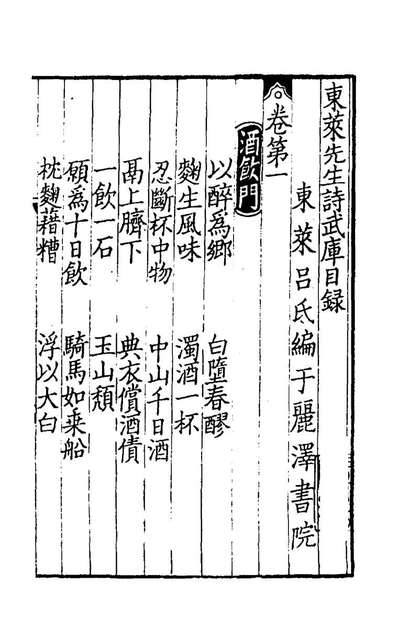 東萊先生詩武庫目録
東萊呂氏編于麗澤書院
卷第一
酒飲門
以醉爲鄉　白墮春醪
麴生風味　濁酒一杯
忍斷杯中物　中山千日酒
鬲上臍下　典衣償酒債
一飲一石　玉山頹
願爲十日飲　騎馬如乗船
枕麴藉糟　浮以大白